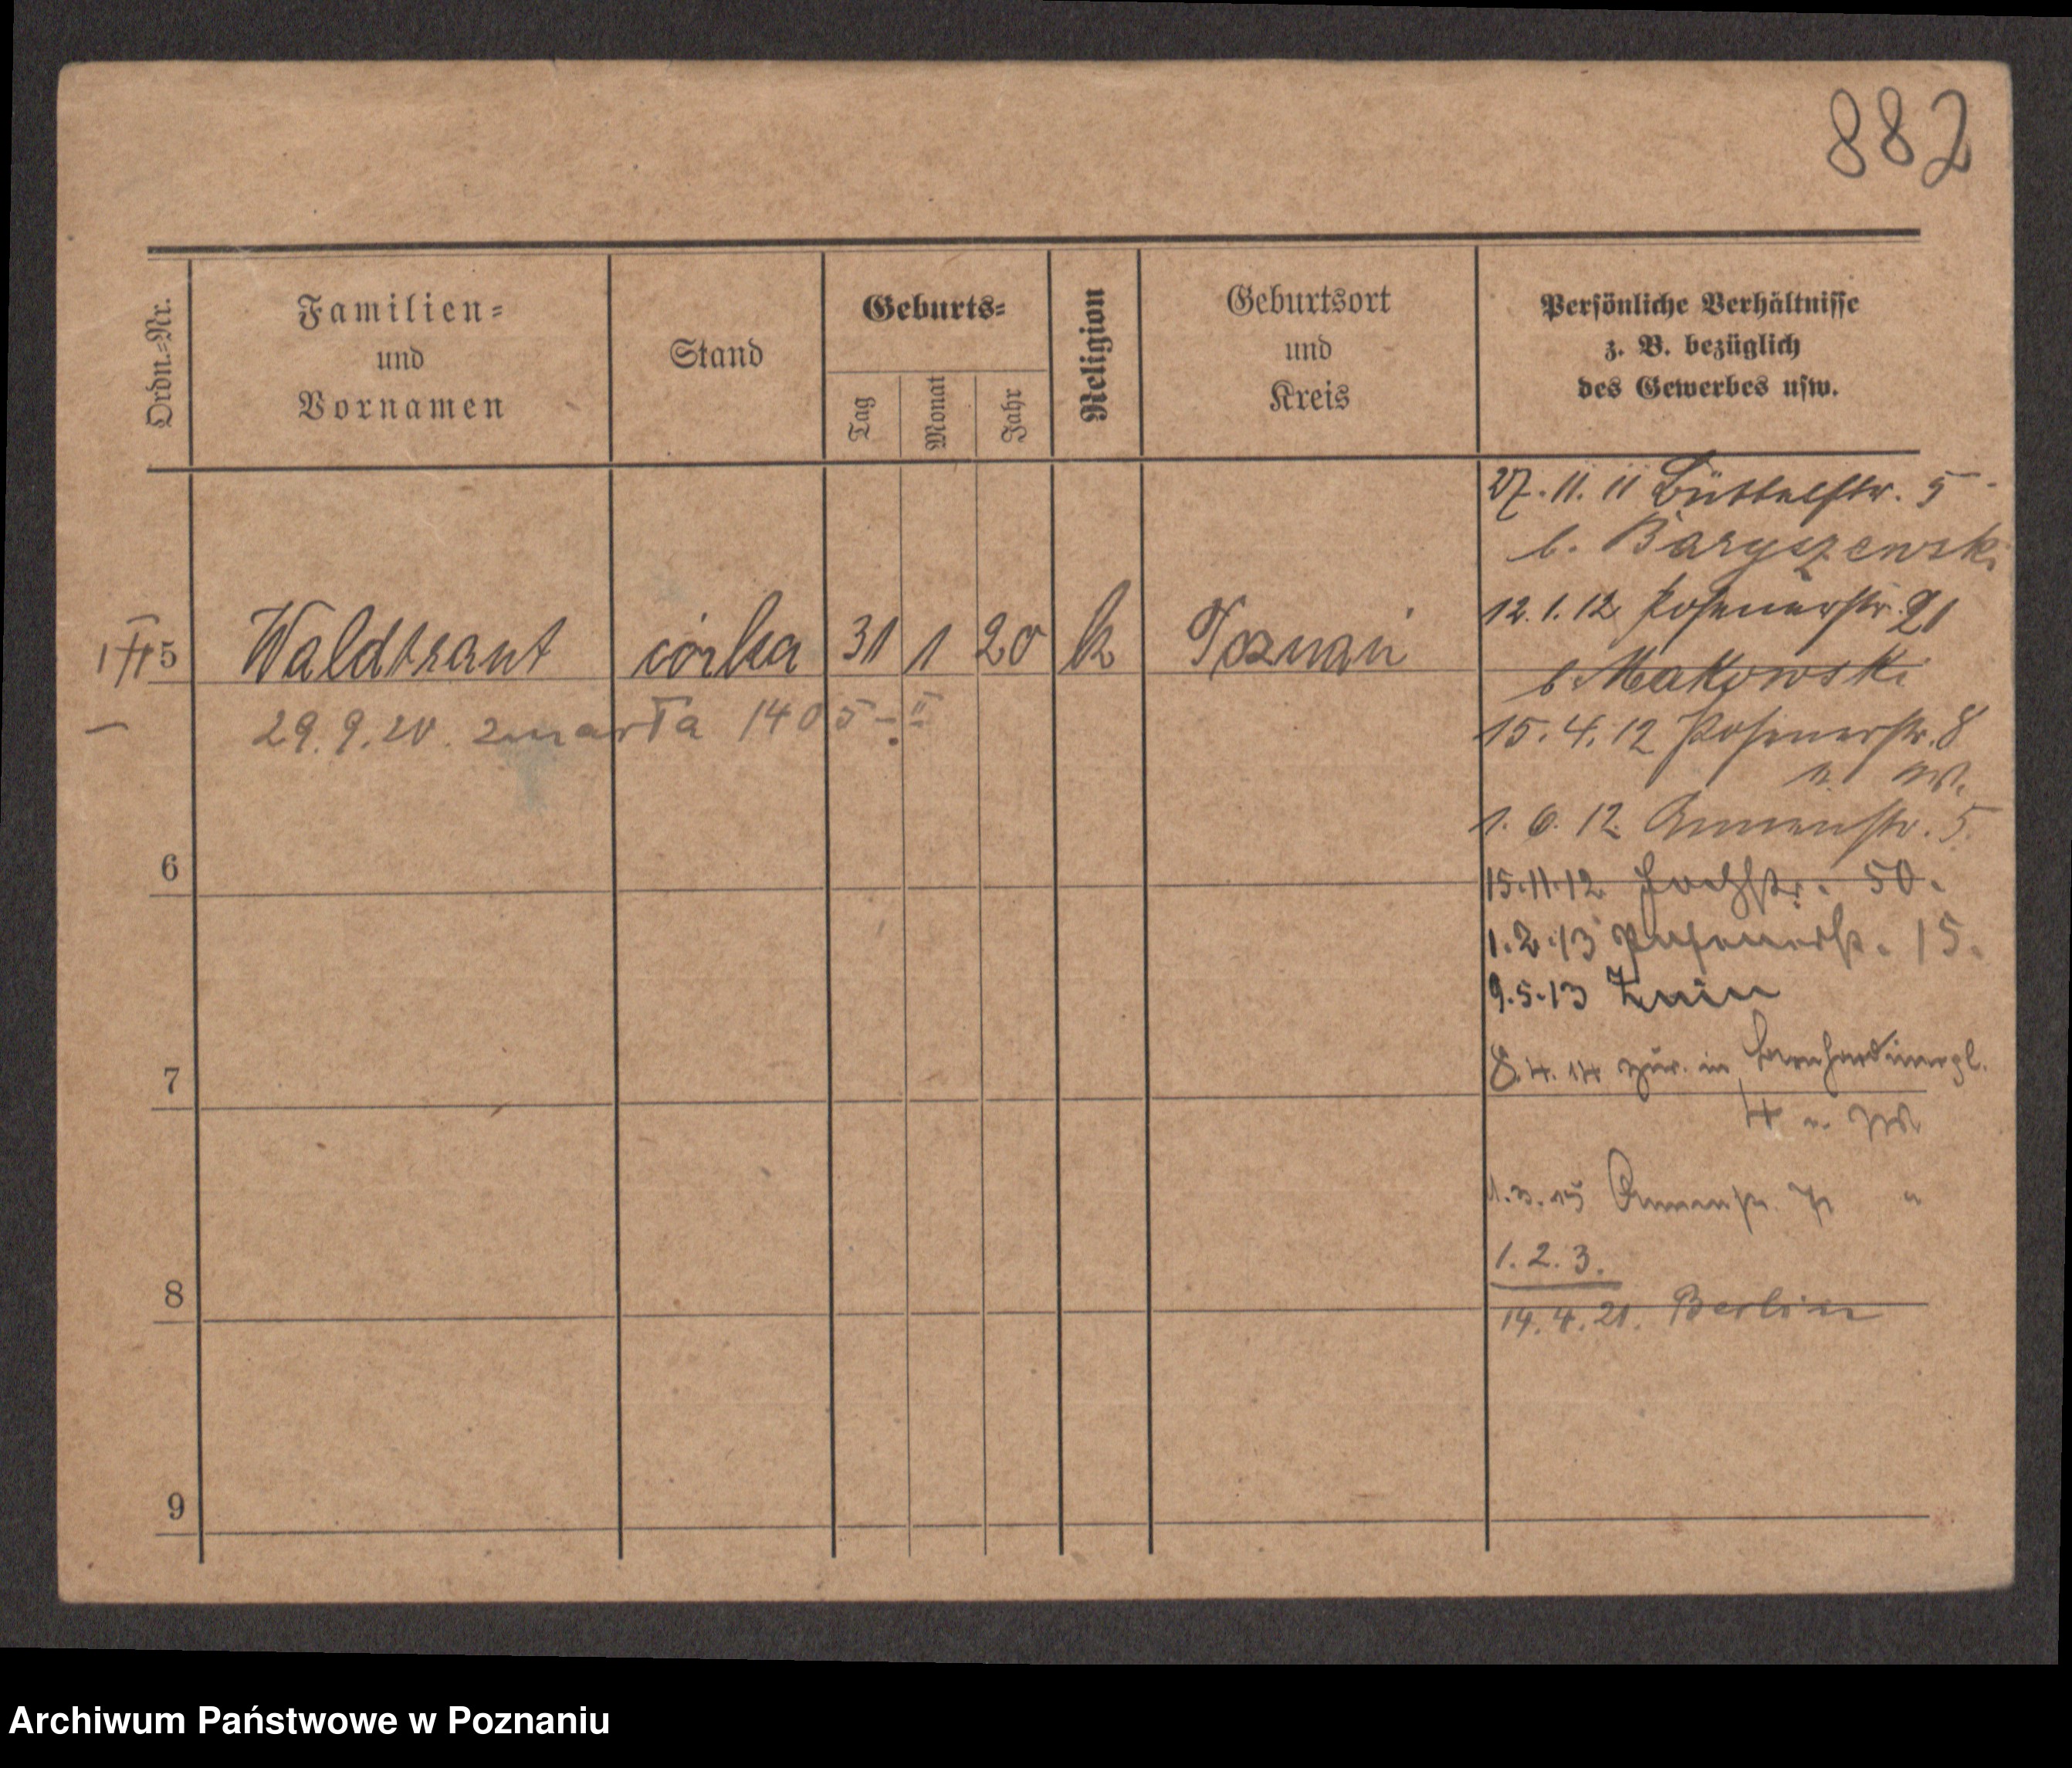 882
Ordn.=Nr.
Familien=
und
Vornamen
Stand
Geburts=
Tag
Monat
Jahr
Religion
Geburtsort
und
Kreis
Persönliche Verhältnisse
z. B. bezüglich
des Gewerbes usw.
27.11.11 Büttelstr. 5
b. Baryszewski
12.1.12 Posenerstr. 21
5 Waldtraut córka 31 1 20 k Poznań
b Makowski
29.9.20. zmarła 1405 - II
15.4.12 Posenerstr. 8
1.6.12 Annenstr. 5.
6
15.11.12 Hochstr. 50.
1.2.13 Posenerstr. 15.
9.5.13 Znin
7
8.4.14 zur. in Bernhardinerpl.
4
Annenstr.
1.2.3.
8
14.4.21. Berlin
9
Archiwum Państwowe w Poznaniu